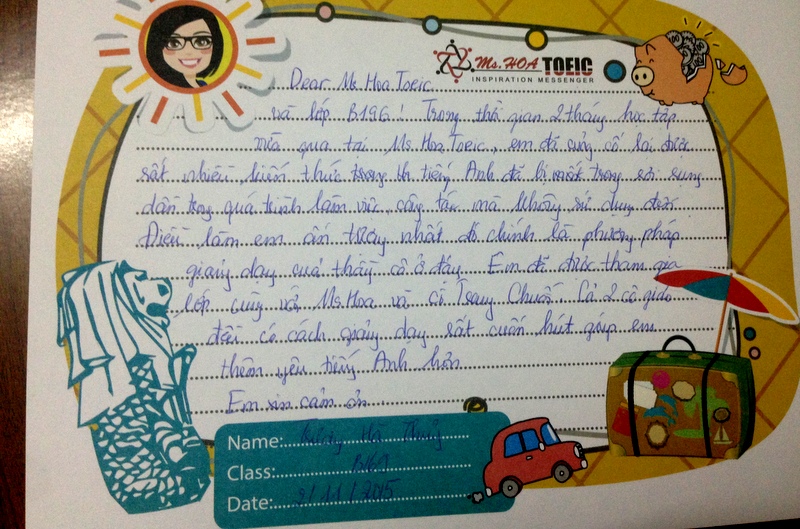 Ms. HOA TOEIC
INSPIRATION MESSENGER
Dear Ms Hoa Toeic
và lớp B196! Trong thời gian 2 tháng học tập
vừa qua tại Ms Hoa Toeic, em đã củng cố lại được
rất nhiều kiến thức trong tiếng Anh đã bị mất trong
dần trong quá trình làm việc, công tác mà không sử dụng đến.
Điều làm em ấn tượng nhất đó chính là phương pháp
giảng dạy của thầy cô ở đây. Em đã được tham gia
lớp cùng với Ms.Hoa và cô Trang Chuối. Cả 2 cô giáo
đều có cách giảng dạy rất cuốn hút giúp em
thêm yêu tiếng Anh hơn
Em xin cảm ơn
Name: Hà
Class:
Date: 9/11/2015